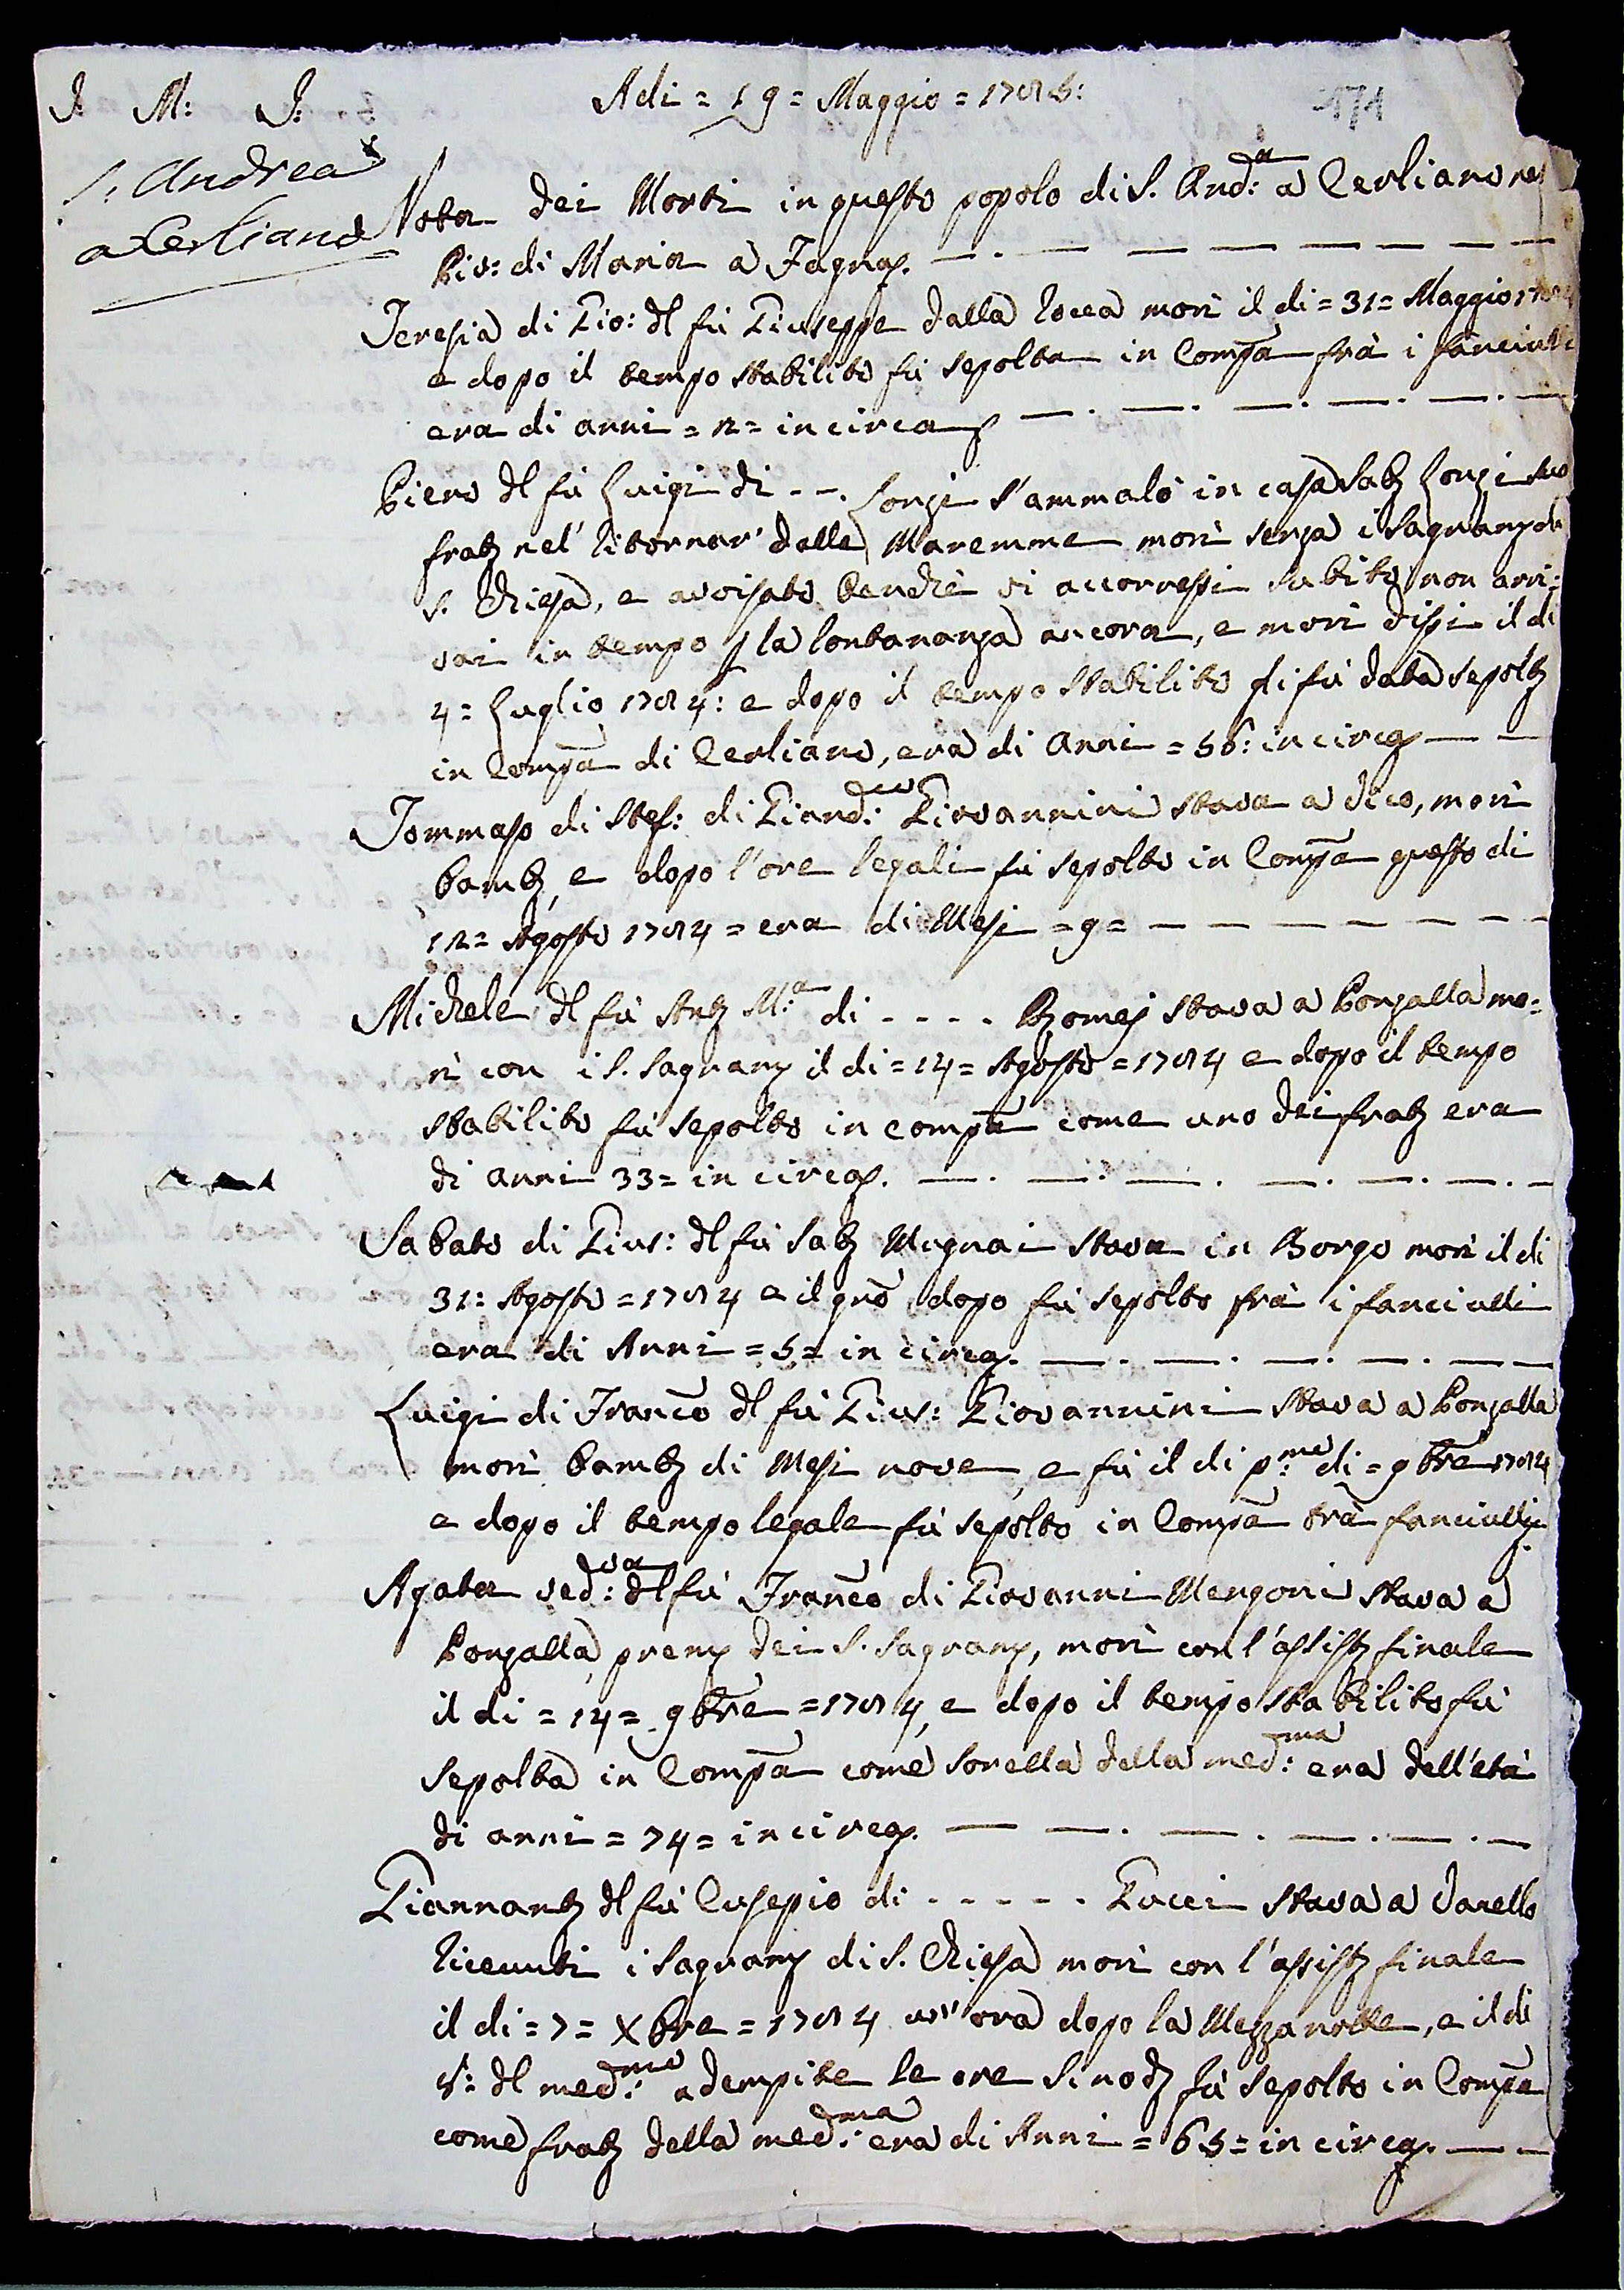 J. M: J.
Adi = 19 = Maggio = 1785:
171
S: Andrea
a Cerliano
Nota dei Morti in questo popolo di S. And:a a Cerliano nel
Piv: di Maria a Fagna.
Teresia di Gio: del fù Giuseppe dalla Rocca morì il di = 31 = Maggio 1784
e dopo il tempo stabilito fù sepolta in Compa frà i fanciulli
era di anni = 12 = in circa
Piero del fù Luigi di - - . Lorzi s'ammalò in casa Sab Lorzi suo
frab nel' ritornar' dalle Maremme morì senza i Sagram di
S. Chiesa, e avvisato benchè vi accorressi subito non arri:
vai in tempo p la lontananza ancora, e morì dissi il di
4 = Luglio 1784: e dopo il tempo stabilito gli fù data sepolt
in Compa di Cerliano, era di Anni = 56: in circa
Tommaso di Stef: di Giand:cco Giovannini stava a Vico, morì
bamb, e dopo l'ore legali fù sepolto in Compa questo di
12 = Agosto 1784 = era di Mesi = 9 =
Michele del fù Ant M:a di - - - - Romei stava a Ponzalla mo:
rì con i S. Sagram il di = 14 = Agosto = 1784 e dopo il tempo
stabilito fù sepolto in compa come uno dei frat era
di anni 33 = in circa.
Sabato di Gius: del fù Sab Mugnai stava in Borgo morì il di
31: Agosto = 1784 e il gno dopo fù sepolto frà i fanciulli
era di Anni = 5 = in circa.
Luigi di Franco del fù Gius: Giovannini stava a Ponzalla
morì bamb di Mesi nove, e fù il di p:mo di = 9bre 1784
e dopo il tempo legale fù sepolto in Compa trà fanciulli
Agata ved:va del fù Franco di Giovanni Mengoni stava a
Ponzalla prem dei S. Sagram, morì con l'assist finale
il di = 14 = 9bre = 1784, e dopo il tempo stabilito fù
sepolta in Compa come sorella della med:ma era dell'età
di anni = 74 = in circa.
Giannant del fù Cusepio di - - - - - Gucci stava a Vanello
ricevuti i Sagram di S. Chiesa morì con l'assist finale
il di = 7 = Xbre = 1784 un'ora dopo la Mezzanotte, e il di
8: del med:mo adempite le ore Sinod fù sepolto in Compa
come frat della med:ma era di Anni = 65 = in circa.